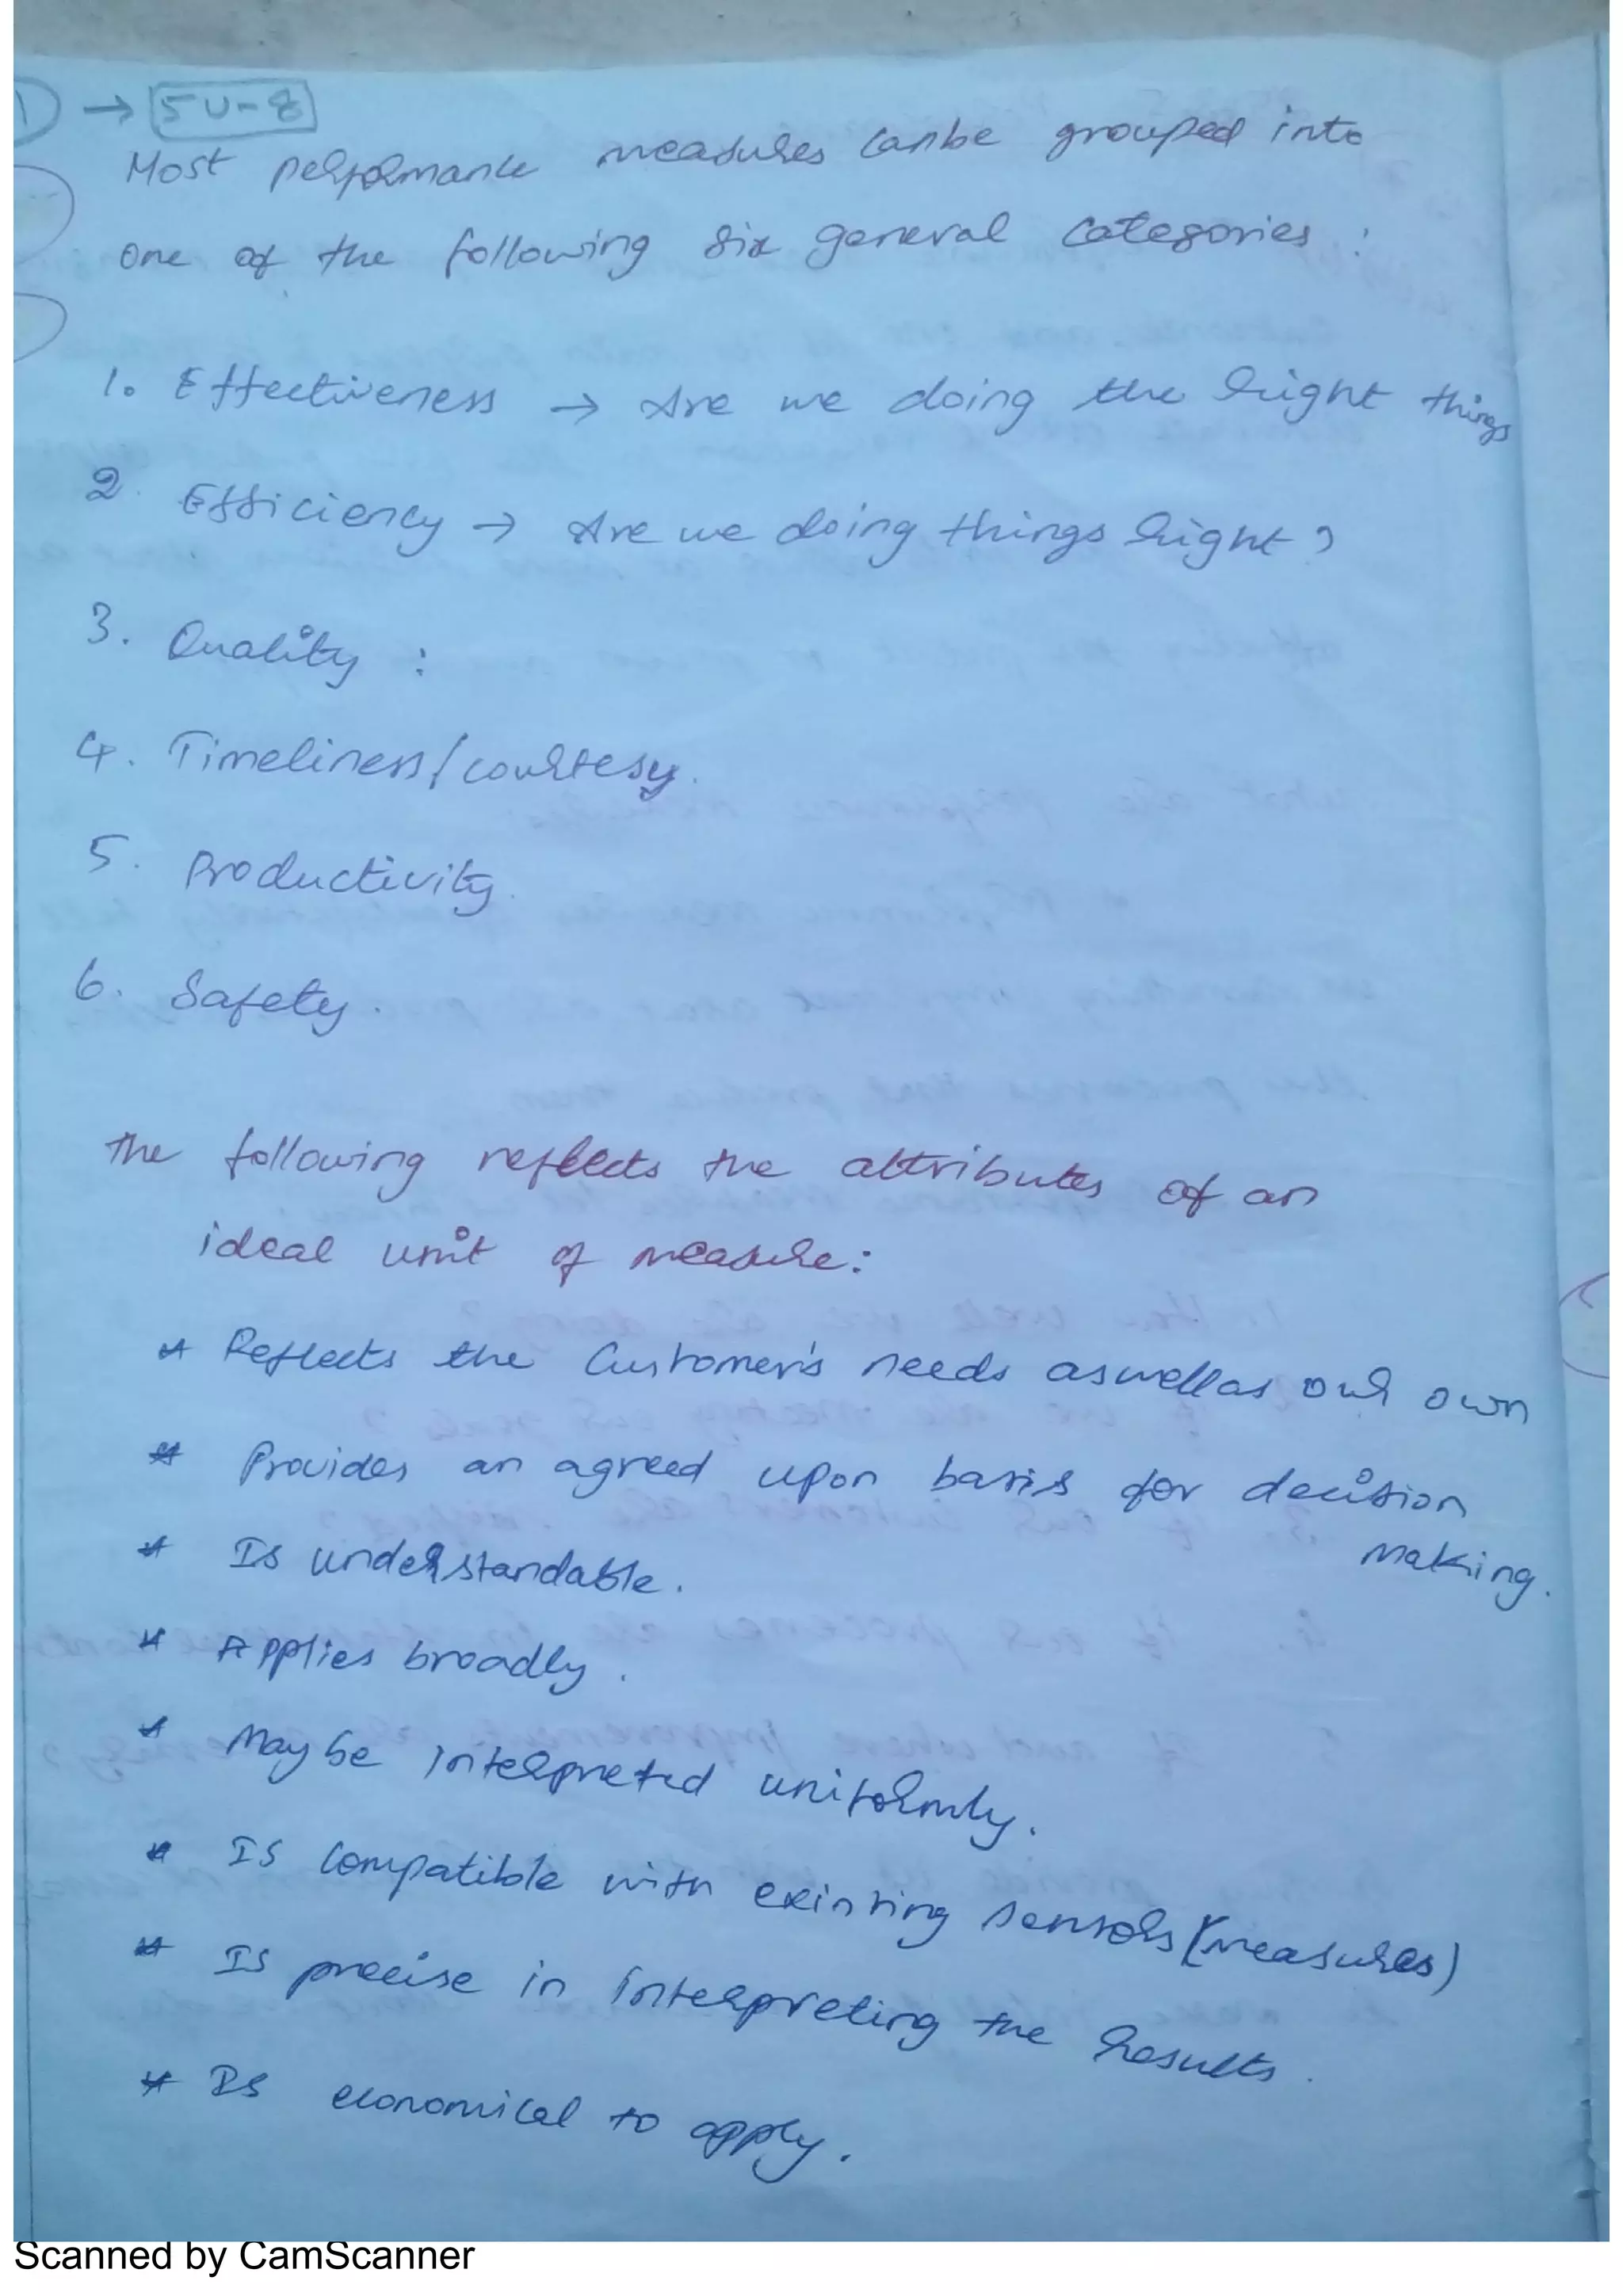 1) → 5U-8
Most performance measures can be grouped into
one of the following six general categories :
1. Effectiveness → Are we doing the right things
2. Efficiency → Are we doing things right?
3. Quality :
4. Timeliness/courtesy.
5. Productivity.
6. Safety.
The following reflects the attributes of an
ideal unit of measure:
* Reflects the Customer's needs aswellas our own
* Provides an agreed upon basis for decision
making.
* Is understandable.
* Applies broadly.
* May be Interpreted uniformly.
* IS Compatible with existing sensors (measures)
* IS precise in interpreting the results.
* Is economical to apply.
Scanned by CamScanner